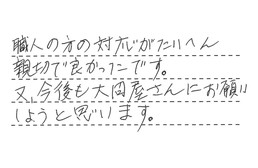 職人の方の対応がたいへん
親切で良かったです。
又、今後も大岡屋さんにお願い
しようと思います。